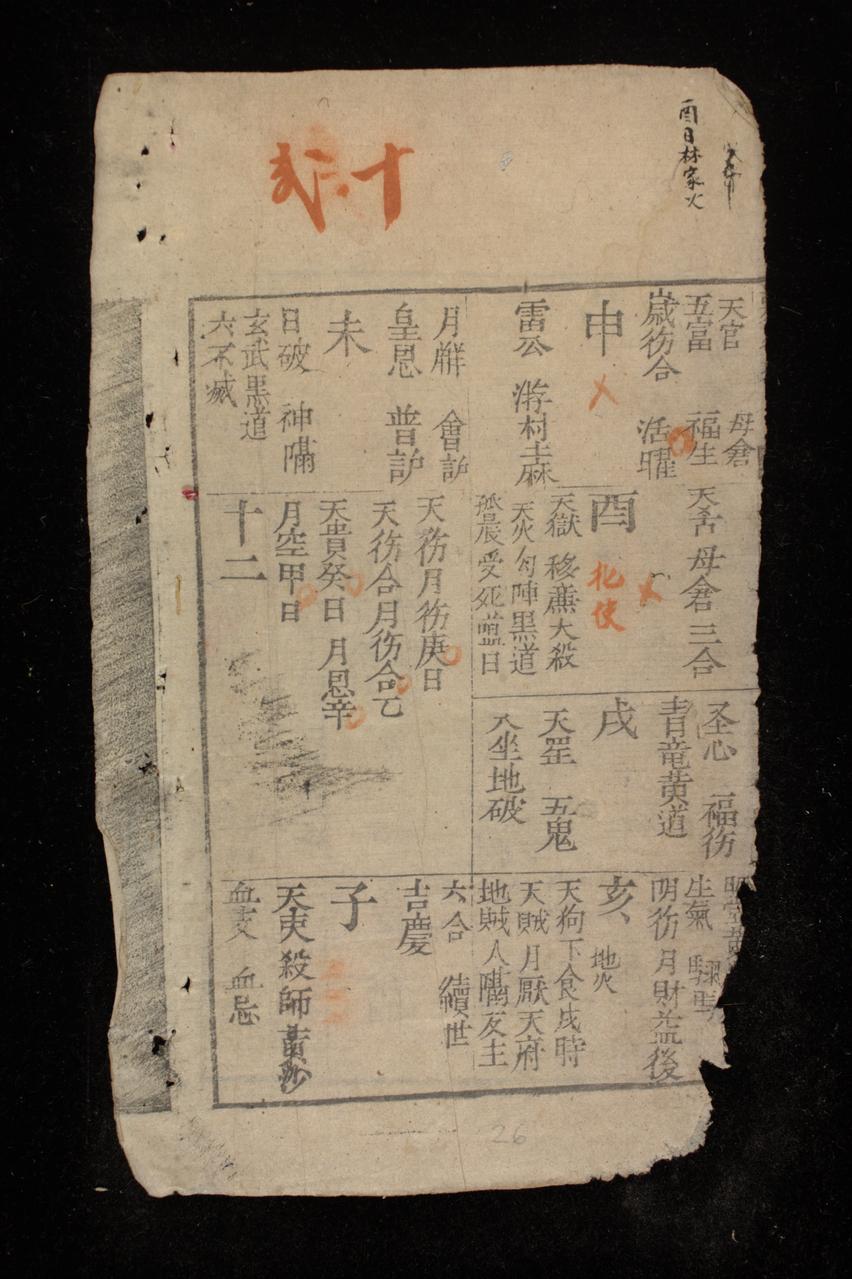 酉日林家火
十二
天官 母倉
五富 福生
歲㣲合 活曜
申
雷公 游村土麻
月解 會訢
皇恩 普訢
未
日破 神隔
玄武黑道
六不成
天舍 母倉 三合
酉
北使
天獄 移蕉大殺
天火勾陣黑道
孤晨受死䓝日
天㣲月㣲庚日
天㣲合月㣲合乙
天貴癸日 月恩辛
月空甲日
十二
圣心 福㣲
青竜黄道
戌
天罡 五鬼
坐地破
生氣
阴㣲月財益後
亥 地火
天狗下食戌時
天賊月厭天府
地賊人隔反土
六合 續世
吉慶
子
天吏殺師黃沙
血支 血忌
26